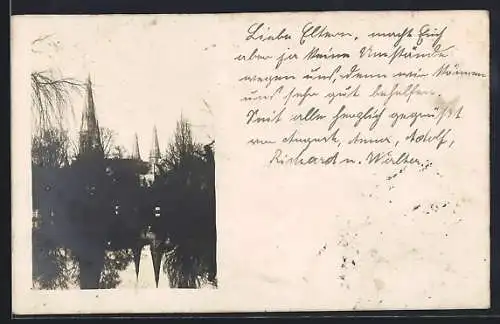 Liebe Eltern, macht Euch
aber ja keine Umstände
wegen uns, denn wir können
uns sehr gut behelfen.
Seit alle herzlich gegrüßt
von August, Anna, Adolf,
Richard u. Walter.